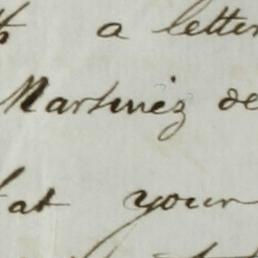 a letter
Martinez de
at your